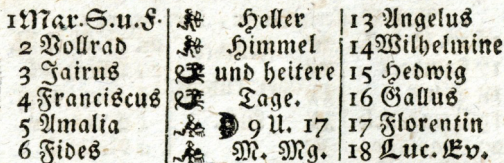 1 Mar. S. u. F. Heller 13 Angelus
2 Vollrad Himmel 14 Wilhelmine
3 Jairus und heitere 15 Hedwig
4 Franciscus Tage. 16 Gallus
5 Amalia 9 U. 17 17 Florentin
6 Fides M. Mg. 18 Luc. Ev.